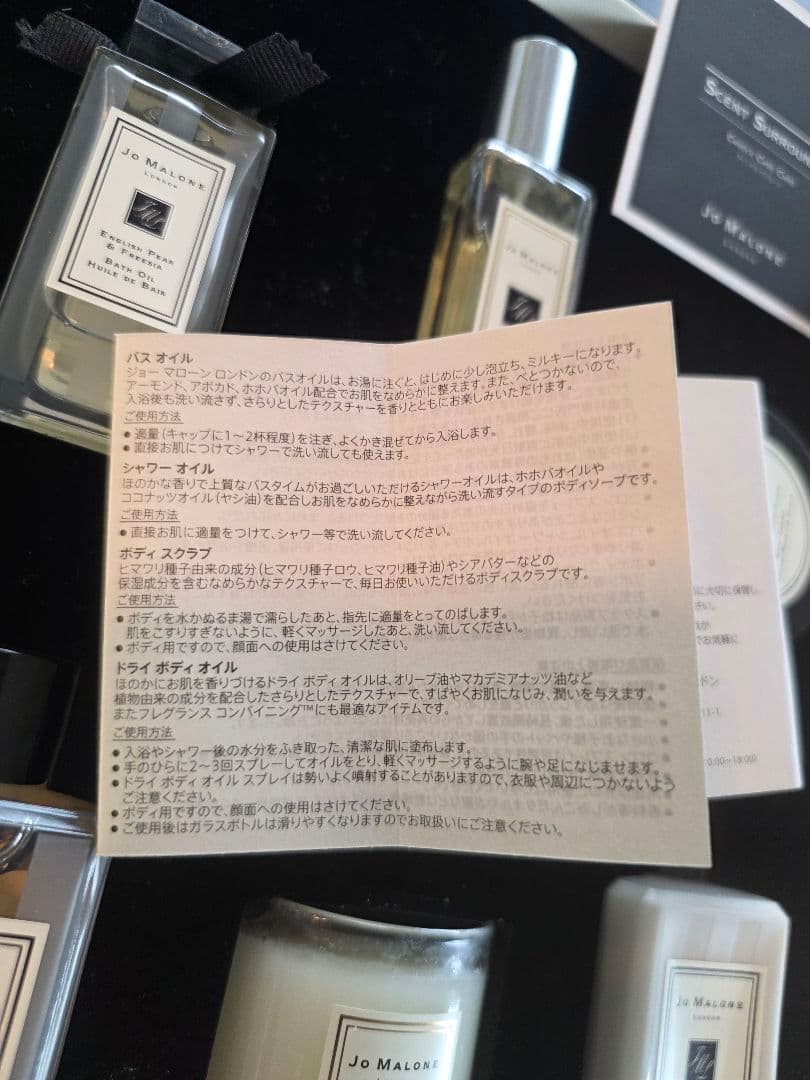 Jo Malone
London
English Pear
& Freesia
Bath Oil
Huile de Bain
Jo Malone
Scent Surroun
Jo Malone
London
バス オイル
ジョー マローン ロンドンのバスオイルは、お湯に注ぐと、はじめに少し泡立ち、ミルキーになります。
アーモンド、アボカド、ホホバオイル配合でお肌をなめらかに整えます。また、べとつかないので、
入浴後も洗い流さず、さらりとしたテクスチャーを香りとともにお楽しみいただけます。
ご使用方法
● 適量（キャップに1〜2杯程度）を注ぎ、よくかき混ぜてから入浴します。
● 直接お肌につけてシャワーで洗い流しても使えます。
シャワー オイル
ほのかな香りで上質なバスタイムがお過ごしいただけるシャワーオイルは、ホホバオイルや
ココナッツオイル（ヤシ油）を配合しお肌をなめらかに整えながら洗い流すタイプのボディソープです。
ご使用方法
● 直接お肌に適量をつけて、シャワー等で洗い流してください。
ボディ スクラブ
ヒマワリ種子由来の成分（ヒマワリ種子ロウ、ヒマワリ種子油）やシアバターなどの
保湿成分を含むなめらかなテクスチャーで、毎日お使いいただけるボディスクラブです。
ご使用方法
● ボディを水かぬるま湯で濡らしたあと、指先に適量をとってのばします。
肌をこすりすぎないように、軽くマッサージしたあと、洗い流してください。
● ボディ用ですので、顔面への使用はさけてください。
ドライ ボディ オイル
ほのかにお肌を香りづけるドライ ボディ オイルは、オリーブ油やマカデミアナッツ油など
植物由来の成分を配合したさらりとしたテクスチャーで、すばやくお肌になじみ、潤いを与えます。
またフレグランス コンバイニング™にも最適なアイテムです。
ご使用方法
● 入浴やシャワー後の水分をふき取った、清潔な肌に塗布します。
● 手のひらに2〜3回スプレーしてオイルをとり、軽くマッサージするように腕や足になじませます。
● ドライ ボディ オイル スプレイは勢いよく噴射することがありますので、衣服や周辺につかないよう
ご注意ください。
● ボディ用ですので、顔面への使用はさけてください。
● ご使用後はガラスボトルは滑りやすくなりますのでお取扱いにご注意ください。
に大切に保管し
さい。
0:00〜18:00)
Jo Malone
Jo Malone
London